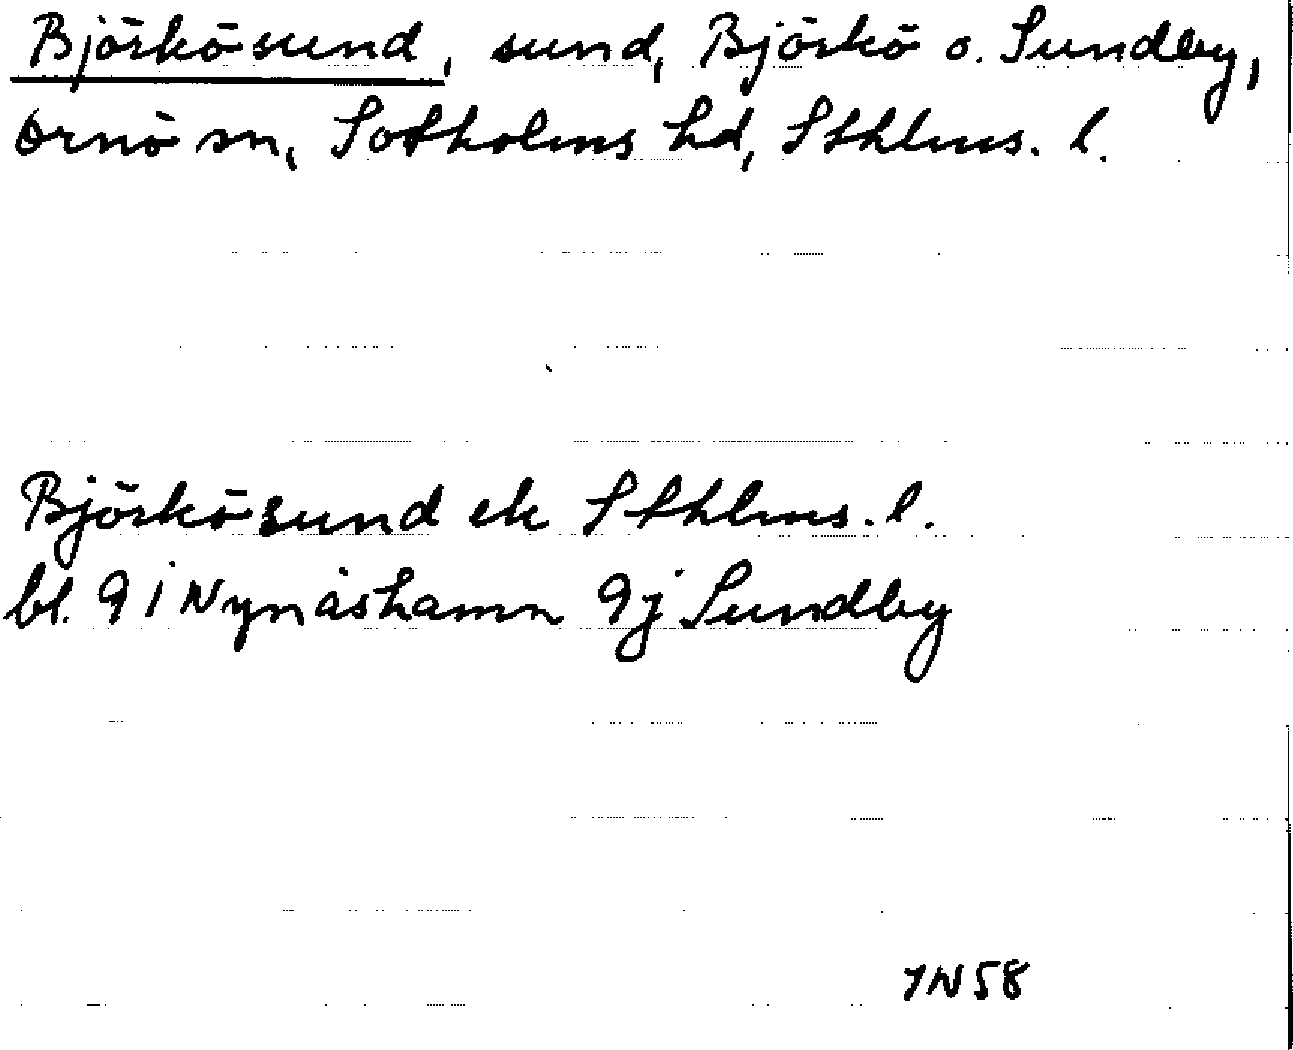 Björkösund, sund, Björkö o. Sundby,
Ornö sn, Sotholms hd, Sthlms. l.
Björkösund ek Sthlms. l.
bl. 9 i Nynäshamn 9j Sundby